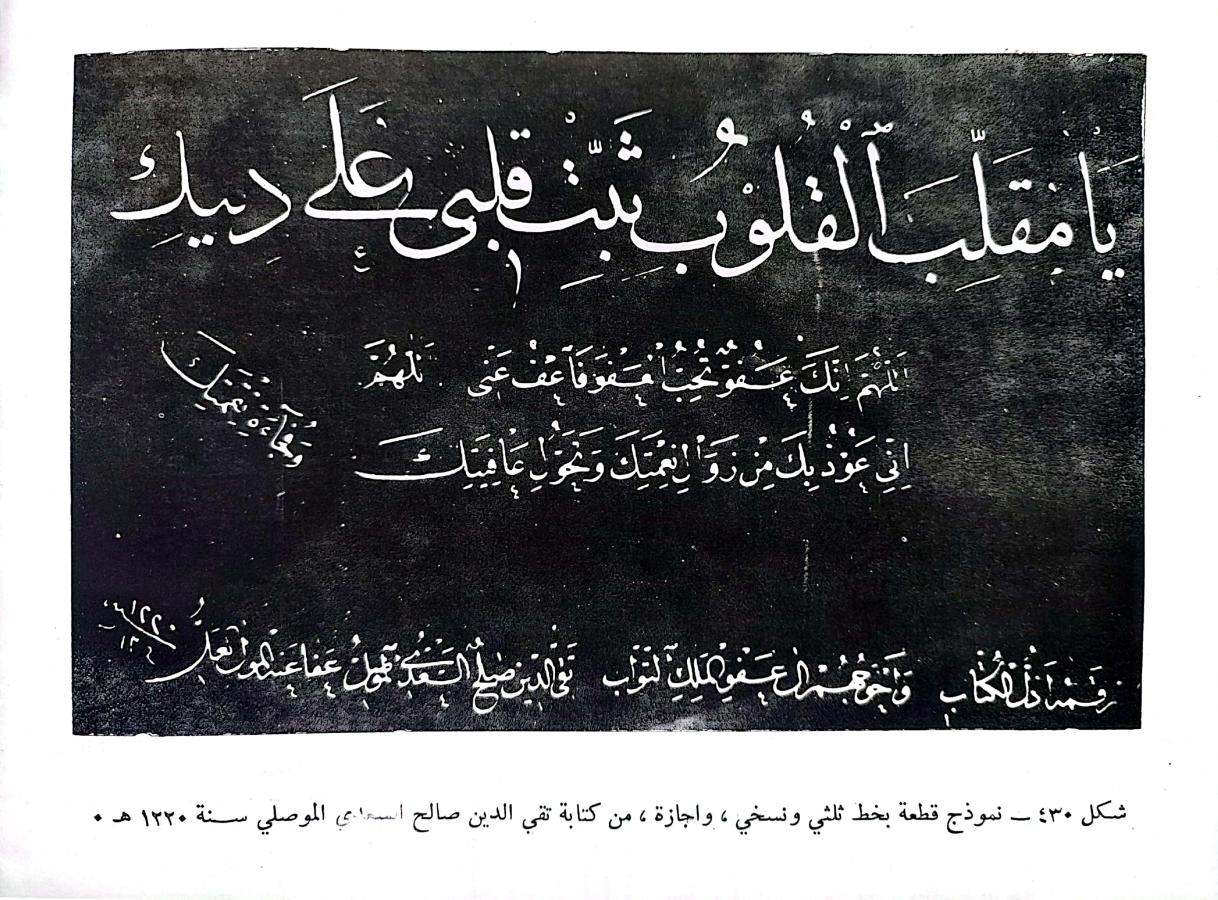 يَا مُقَلِّبَ ٱلْقُلُوْبِ ثَبِّتْ قَلْبِي عَلَى دِيِنِكَ
اَللّٰهُمَّ اِنَّكَ عَفُوٌّ تُحِبُّ الْعَفْوَ فَاعْفُ عَنِّى اَللّٰهُمَّ
اِنِّي اَعُوْذُ بِكَ مِنْ زَوَالِ نِعْمَتِكَ وَتَحَوُّلِ عَافِيَتِكَ
وَفُجَاءَةِ نِقْمَتِكَ
رقمه اذل الكتاب واحوجهم الى عفو الملك التواب تقي الدين صالح السعدي الموصلي عفا عنه المولى العلي
١٢٢٠
شكل ٤٣٠ ــ نموذج قطعة بخط ثلثي ونسخي ، واجازة ، من كتابة تقي الدين صالح السعدي الموصلي سنة ١٢٢٠ هـ ٠